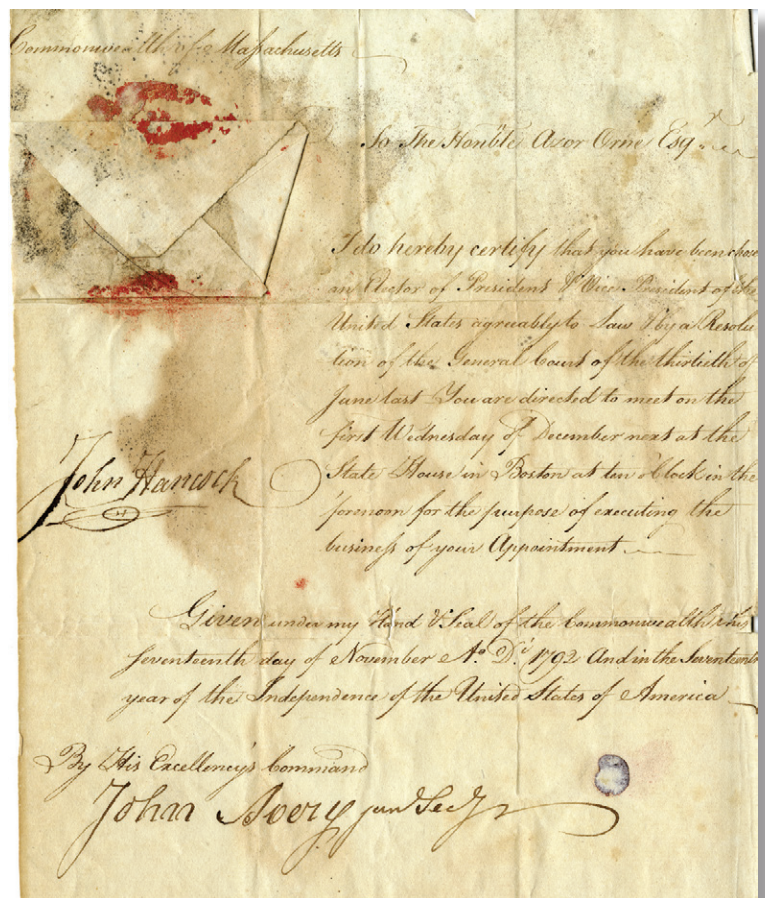 Commonwealth of Massachusetts
To The Honble Azor Orne Esqr
I do hereby certify that you have been chose
an Elector of President & Vice President of the
United States agreeably to Law & by a Resolu
tion of the General Court of the thirtieth of
June last You are directed to meet on the
first Wednesday of December next at the
State House in Boston at ten oClock in the
forenoon for the purpose of executing the
business of your Appointment
John Hancock
Given under my Hand & Seal of the Commonwealth this
seventeenth day of November Ao. Di. 1792 And in the Seventeenth
year of the Independence of the United States of America
By His Excellency's Command
John Avery junr Secy